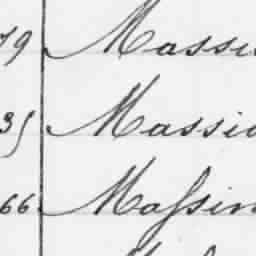 79 Massi
35 Massi
66 Maſsin